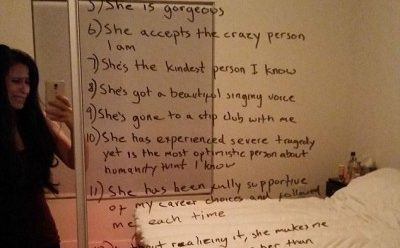 5) She is gorgeous
6) She accepts the crazy person
I am
7) She's the kindest person I know
8) She's got a beautiful singing voice
9) She's gone to a strip club with me
10) She has experienced severe tragedy
yet is the most optimistic person about
humanity that I know
11) She has been fully supportive
of my career choices and followed
me each time
without realizing it, she makes me
than